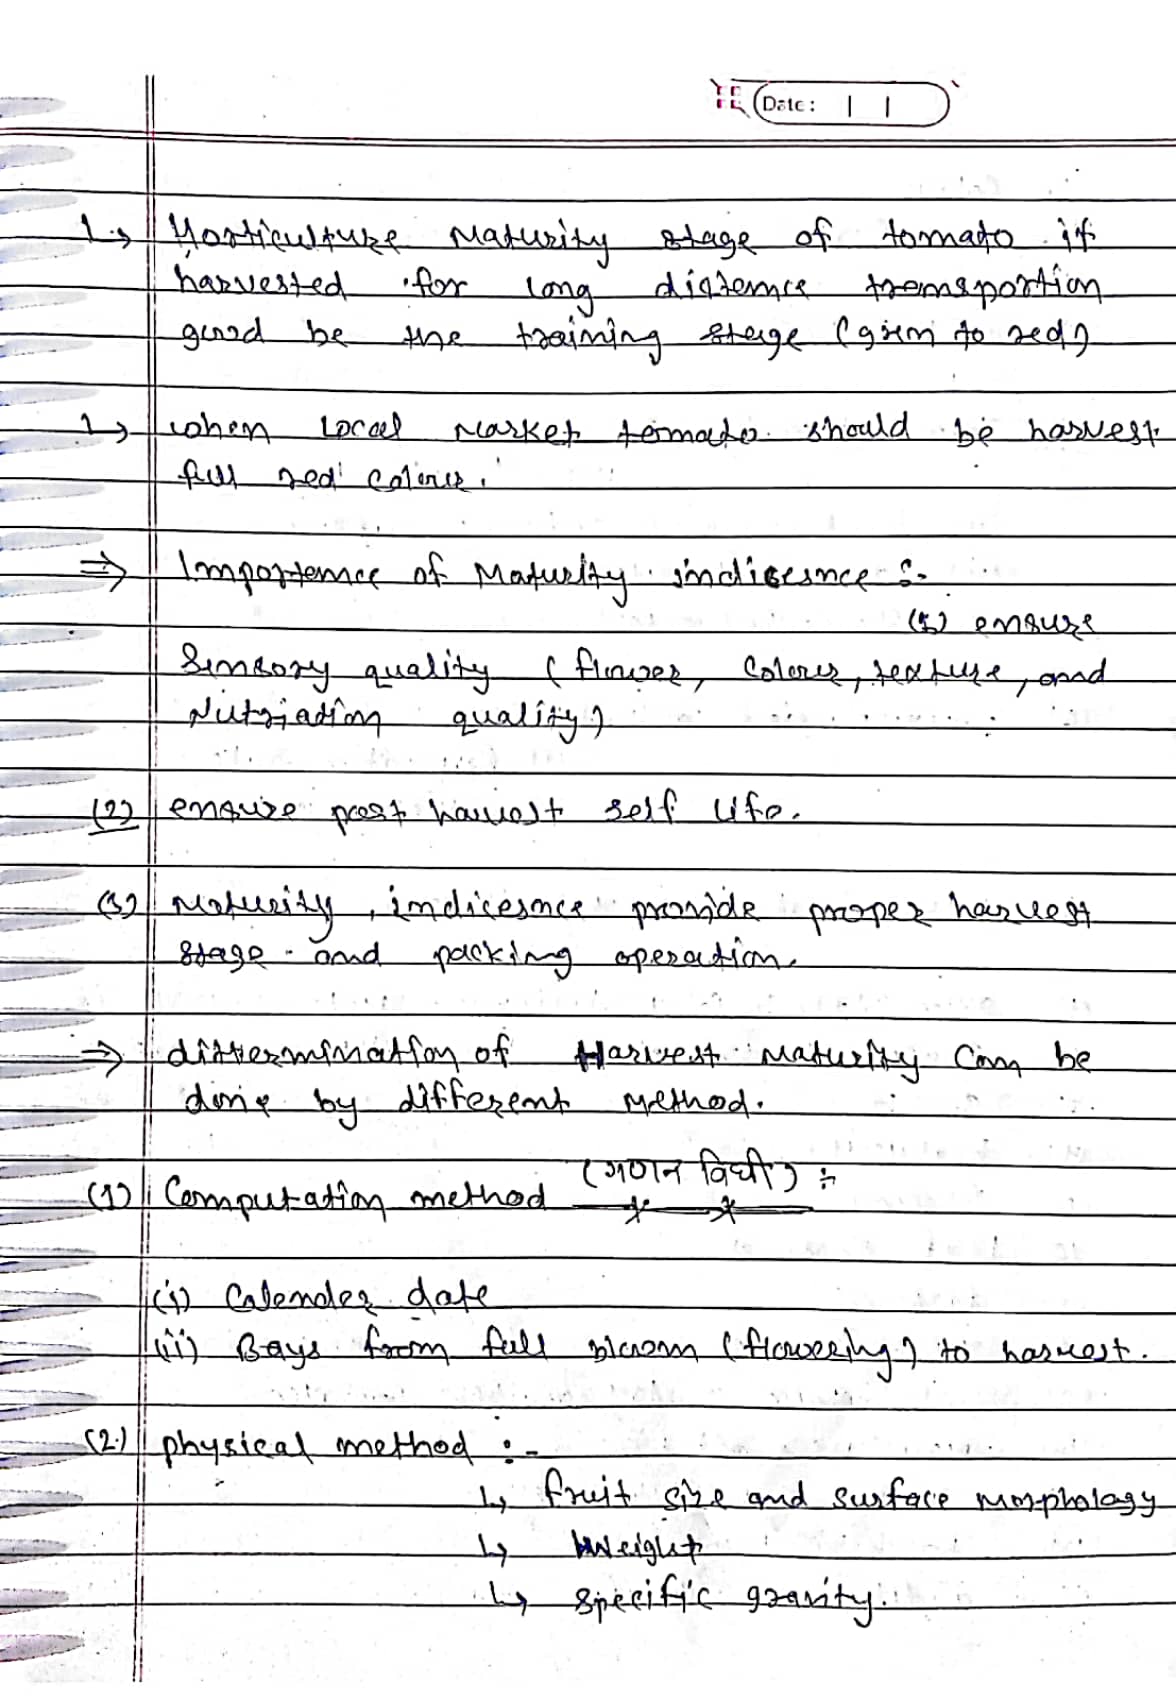 Date:
↳ Horticulture Maturity stage of tomato if
harvested for long distence transportion
good be the training stage (green to red)
↳ when Local Market tomato should be harvest
full red colour.
⇒ Importence of Maturity indicesnce :-
(1) ensure
Sensory quality (flower, Colour, texture, and
Nutriading quality)
(2) ensure post harvest self life.
(3) Maturity indicesnce provide proper harvest
stage and packing operation.
⇒ dittermination of Harvest Maturity Can be
done by different Method.
(गणन विधी) ÷
(1) Computation method
(i) Calender date
(ii) Days from full bloom (flowering) to harvest.
(2) physical method :-
↳ fruit size and surface morphology
↳ Weight
↳ Specific gravity.